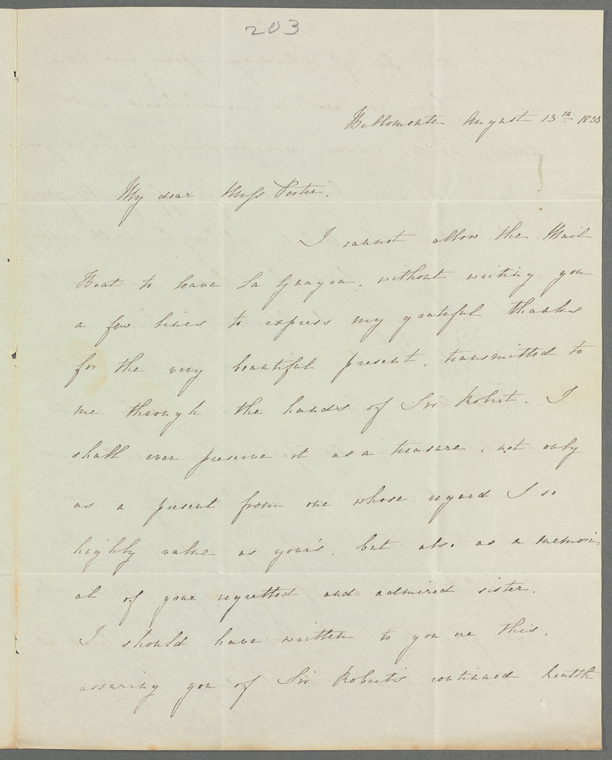 203
Bellomonte August 13th 1833
My dear Miss Porter.
I cannot allow the Mail
Boat to leave La Guayra, without writing you
a few lines to express my grateful thanks
for the very beautiful present, transmitted to
me through the hands of Sir Robert. I
shall ever preserve it as a treasure, not only
as a present from one whose regard I so
highly value as your's, but also as a memori-
al of your regretted and admired sister.
I should have written to you ere this,
assuring you of Sir Robert's continued health